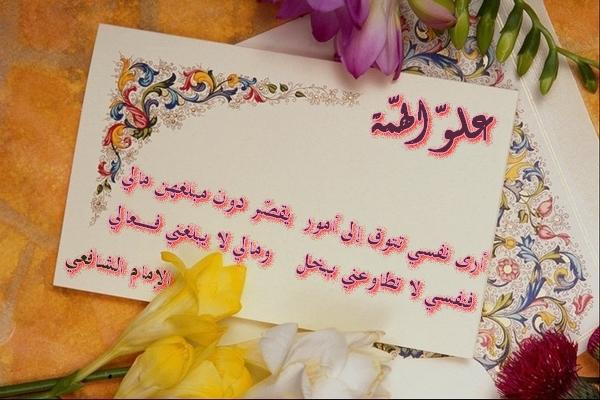 علوّ الهمّة
أرى نفسي تتوق إلى أمور يقصّر دون مبلغهن مالي
فنفسي لا تطاوعني ببخل ومالي لا يبلغني فعالي
الإمام الشافعي